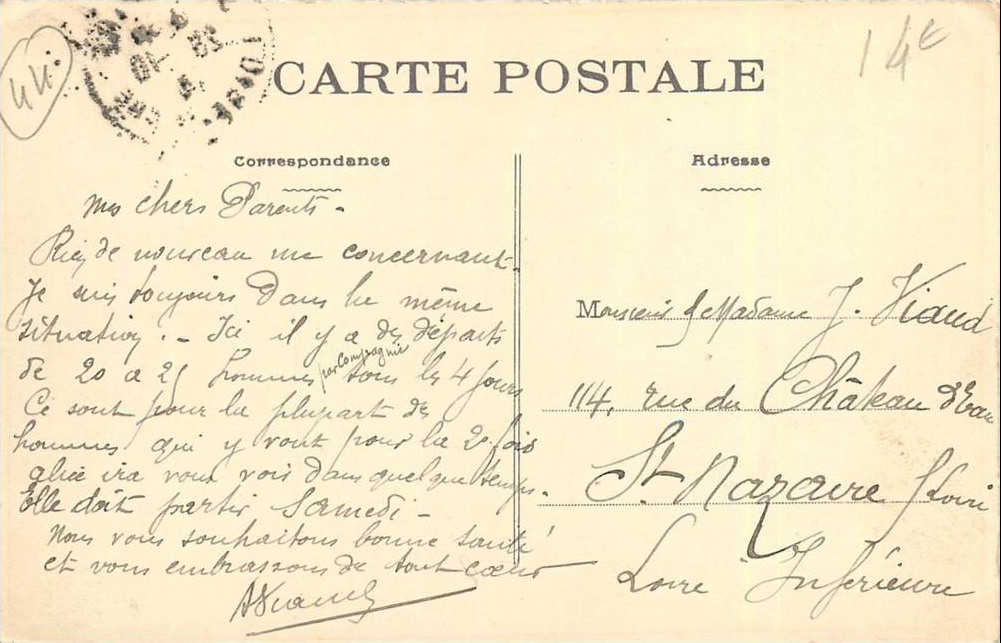 44.
14 €
CARTE POSTALE
Correspondance
Adresse
Mes chers Parents -
Rien de nouveau me concernant -
Je suis toujours dans la même
situation. - Ici il y a des départs
de 20 à 25 hommes par Compagnie tous les 4 jours
Ce sont pour la plupart des
hommes qui y vont pour la 2e fois
Alice ira vous voir dans quelque temps.
Elle doit partir Samedi -
Nous vous souhaitons bonne santé
et vous embrassons de tout coeur
AViaud
Monsieur & Madame J. Viaud
114, rue du Château d'Eau
St Nazaire s/Loire
Loire Inférieure